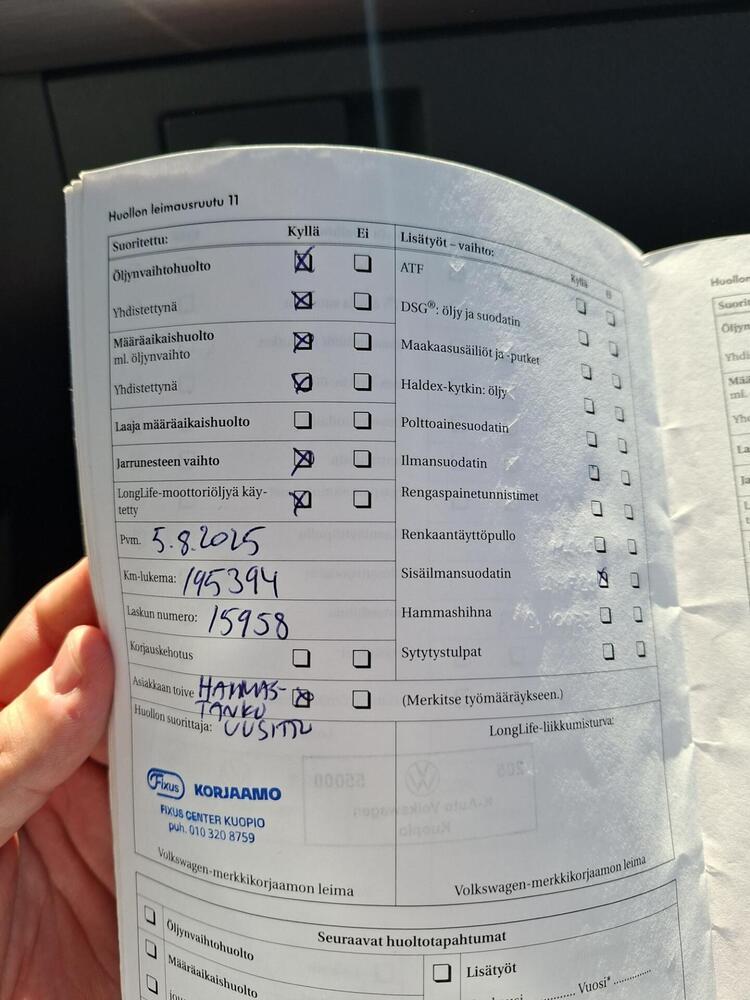 Huollon leimausruutu 11
Suoritettu: Kyllä Ei
Öljynvaihtohuolto
Yhdistettynä
Määräaikaishuolto
ml. öljynvaihto
Yhdistettynä
Laaja määräaikaishuolto
Jarrunesteen vaihto
LongLife-moottoriöljyä käy-
tetty
Pvm. 5.8.2025
Km-lukema: 195394
Laskun numero: 15958
Korjauskehotus
Asiakkaan toive HAMMAS-
TANKO
Huollon suorittaja: UUSITTU
Fixus KORJAAMO
FIXUS CENTER KUOPIO
puh. 010 320 8759
Volkswagen-merkkikorjaamon leima
Lisätyöt – vaihto: Kyllä Ei
ATF
DSG®: öljy ja suodatin
Maakaasusäiliöt ja -putket
Haldex-kytkin: öljy
Polttoainesuodatin
Ilmansuodatin
Rengaspainetunnistimet
Renkaantäyttöpullo
Sisäilmansuodatin
Hammashihna
Sytytystulpat
(Merkitse työmääräykseen.)
LongLife-liikkumisturva:
Volkswagen-merkkikorjaamon leima
Seuraavat huoltotapahtumat
Öljynvaihtohuolto
Määräaikaishuolto
Lisätyöt
Vuosi*